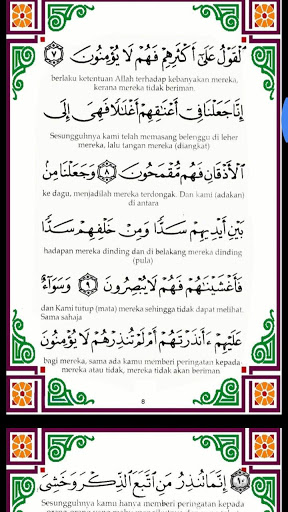 ٱلْقَوْلُ عَلَىٰٓ أَكْثَرِهِمْ فَهُمْ لَا يُؤْمِنُونَ ٧
berlaku ketentuan Allah terhadap kebanyakan mereka,
kerana mereka tidak beriman.
إِنَّا جَعَلْنَا فِىٓ أَعْنَٰقِهِمْ أَغْلَٰلًا فَهِىَ إِلَى
Sesungguhnya kami telah memasang belenggu di leher
mereka, lalu tangan mereka (diangkat)
ٱلْأَذْقَانِ فَهُم مُّقْمَحُونَ ٨ وَجَعَلْنَا مِنۢ
ke dagu, menjadilah mereka terdongak. Dan kami (adakan)
di antara
بَيْنِ أَيْدِيهِمْ سَدًّا وَمِنْ خَلْفِهِمْ سَدًّا
hadapan mereka dinding dan di belakang mereka dinding
(pula)
فَأَغْشَيْنَٰهُمْ فَهُمْ لَا يُبْصِرُونَ ٩ وَسَوَآءٌ
dan Kami tutup (mata) mereka sehingga tidak dapat melihat.
Sama sahaja
عَلَيْهِمْ ءَأَنذَرْتَهُمْ أَمْ لَمْ تُنذِرْهُمْ لَا يُؤْمِنُونَ
bagi mereka, sama ada kamu memberi peringatan kepada
mereka atau tidak, mereka tidak akan beriman
8
١٠ إِنَّمَا تُنذِرُ مَنِ ٱتَّبَعَ ٱلذِّكْرَ وَخَشِىَ
Sesungguhnya kamu hanya memberi peringatan kepada